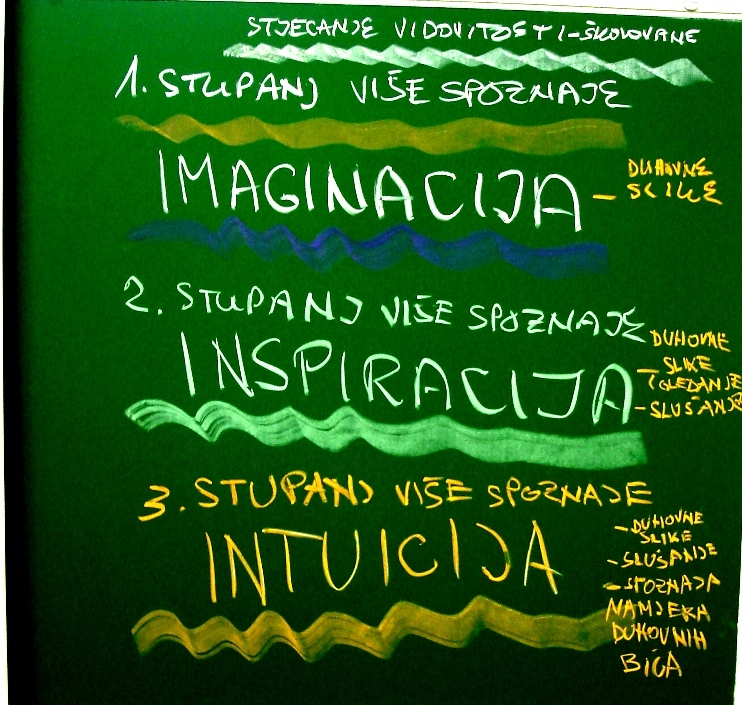 STJECANJE VIDOVITOSTI - ŠKOLOVANE
1. STUPANJ VIŠE SPOZNAJE
IMAGINACIJA
- DUHOVNE
SLIKE
2. STUPANJ VIŠE SPOZNAJE
INSPIRACIJA
DUHOVNE
- SLIKE
I GLEDANJE
- SLUŠANJE
3. STUPANJ VIŠE SPOZNAJE
INTUICIJA
- DUHOVNE
SLIKE
- SLUŠANJE
- SPOZNAJA
NAMJERA
DUHOVNIH
BIĆA